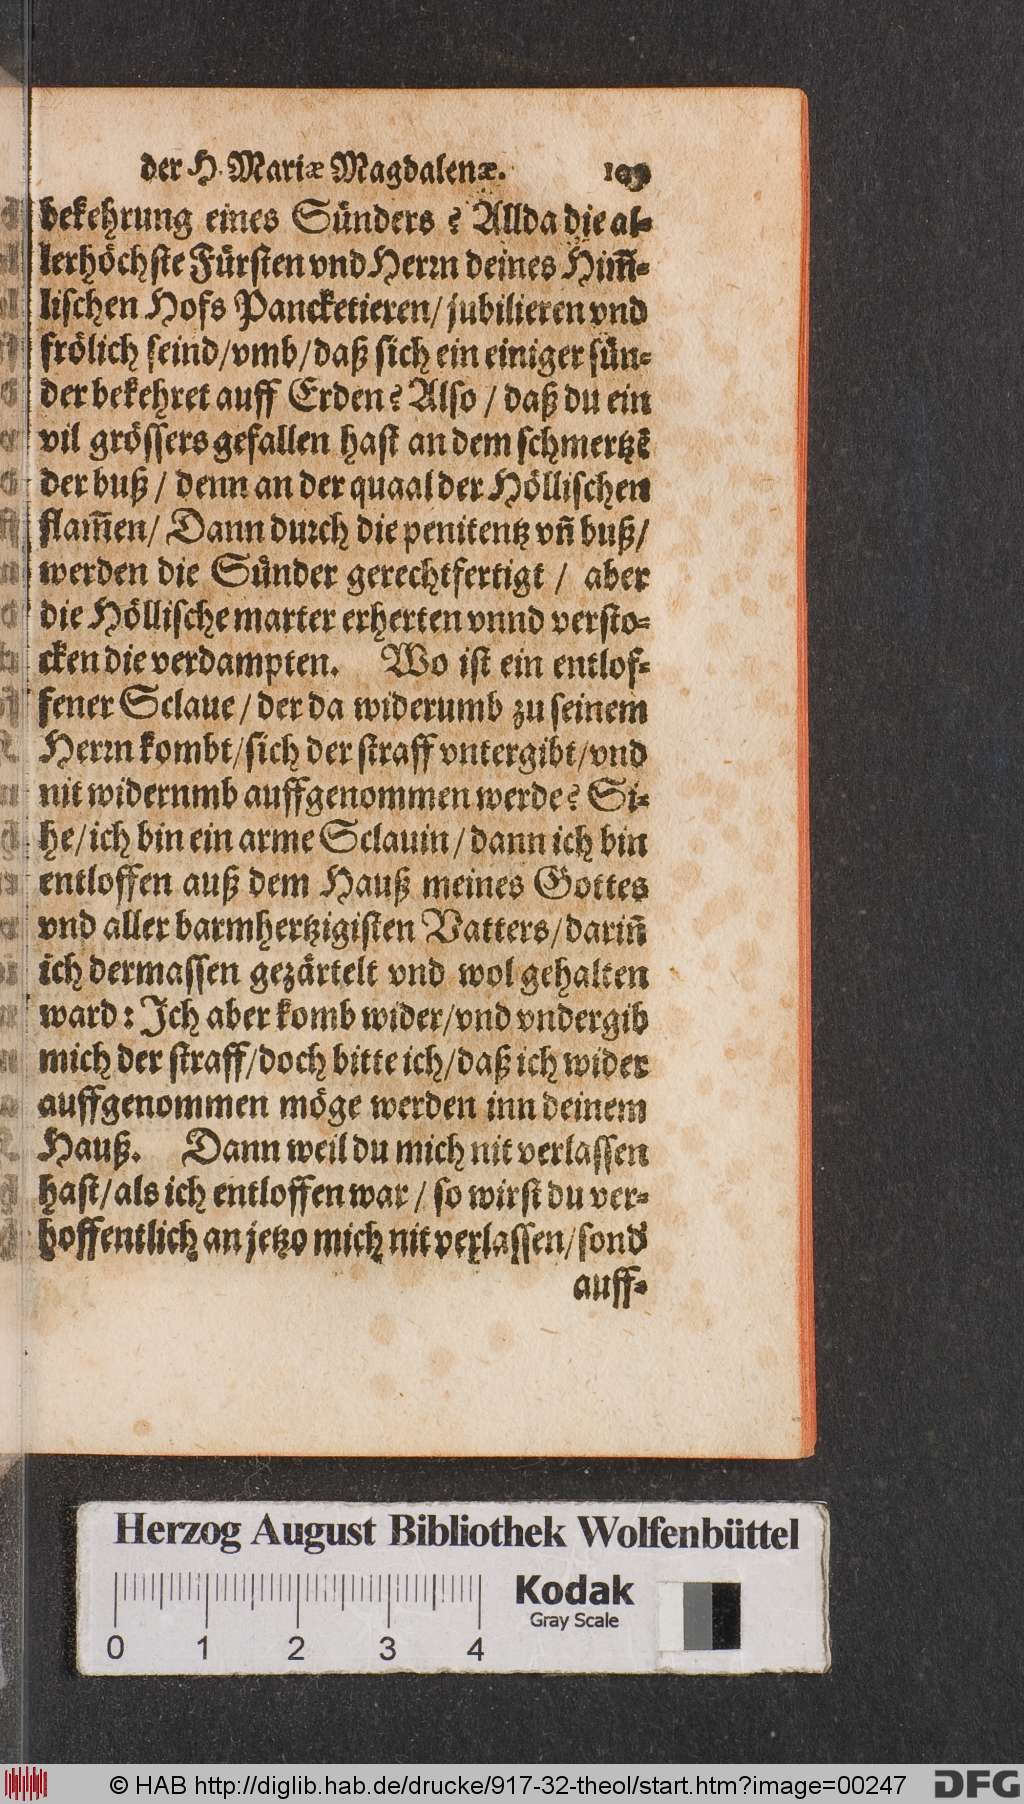 der H. Mariæ Magdalenæ. 109
bekehrung eines Sünders? Allda die al-
lerhöchste Fürsten vnd Herrn deines Him̃-
lischen Hofs Pancketieren/ jubilieren vnd
frölich seind/vmb/daß sich ein einiger sün-
der bekehret auff Erden? Also / daß du ein
vil grössers gefallen hast an dem schmertzẽ
der buß / denn an der quaal der Höllischen
flam̃en/ Dann durch die penitentz vñ buß/
werden die Sünder gerechtfertigt / aber
die Höllische marter erherten vnnd versto-
cken die verdampten. Wo ist ein entlof-
fener Sclaue / der da widerumb zu seinem
Herrn kombt/sich der straff vntergibt/vnd
nit widernmb auffgenommen werde? Si-
he/ich bin ein arme Sclauin / dann ich bin
entloffen auß dem Hauß meines Gottes
vnd aller barmhertzigisten Vatters/dariñ
ich dermassen gezärtelt vnd wol gehalten
ward: Ich aber komb wider/vnd vndergib
mich der straff/doch bitte ich/daß ich wider
auffgenommen möge werden inn deinem
Hauß. Dann weil du mich nit verlassen
hast/als ich entloffen war / so wirst du ver-
hoffentlich an jetzo mich nit verlassen/sond'
auff-
Herzog August Bibliothek Wolfenbüttel
Kodak
Gray Scale
0 1 2 3 4
© HAB http://diglib.hab.de/drucke/917-32-theol/start.htm?image=00247
DFG